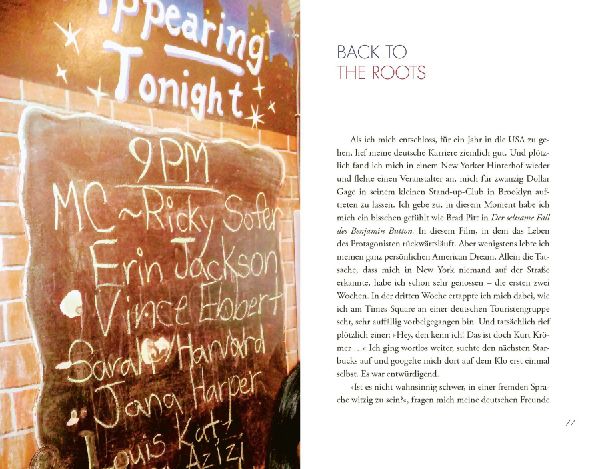 Appearing
Tonight
9PM
MC ~ Ricky Sofer
Erin Jackson
Vince Ebbert
Sarah Harvard
Jana Harper
Louis Katz
Azizi
BACK TO
THE ROOTS
Als ich mich entschloss, für ein Jahr in die USA zu ge-
hen, lief meine deutsche Karriere ziemlich gut. Und plötz-
lich fand ich mich in einem New Yorker Hinterhof wieder
und flehte einen Veranstalter an, mich für zwanzig Dollar
Gage in seinem kleinen Stand-up-Club in Brooklyn auf-
treten zu lassen. Ich gebe zu, in diesem Moment habe ich
mich ein bisschen gefühlt wie Brad Pitt in Der seltsame Fall
des Benjamin Button. In diesem Film, in dem das Leben
des Protagonisten rückwärtsläuft. Aber wenigstens lebte ich
meinen ganz persönlichen American Dream. Allein die Tat-
sache, dass mich in New York niemand auf der Straße
erkannte, habe ich schon sehr genossen – die ersten zwei
Wochen. In der dritten Woche ertappte ich mich dabei, wie
ich am Times Square an einer deutschen Touristengruppe
sehr, sehr auffällig vorbeigegangen bin. Und tatsächlich rief
plötzlich einer: »Hey, den kenn ich! Das ist doch Kurt Krö-
mer…« Ich ging wortlos weiter, suchte den nächsten Star-
bucks auf und googelte mich dort auf dem Klo erst einmal
selbst. Es war entwürdigend.
»Ist es nicht wahnsinnig schwer, in einer fremden Spra-
che witzig zu sein?«, fragen mich meine deutschen Freunde